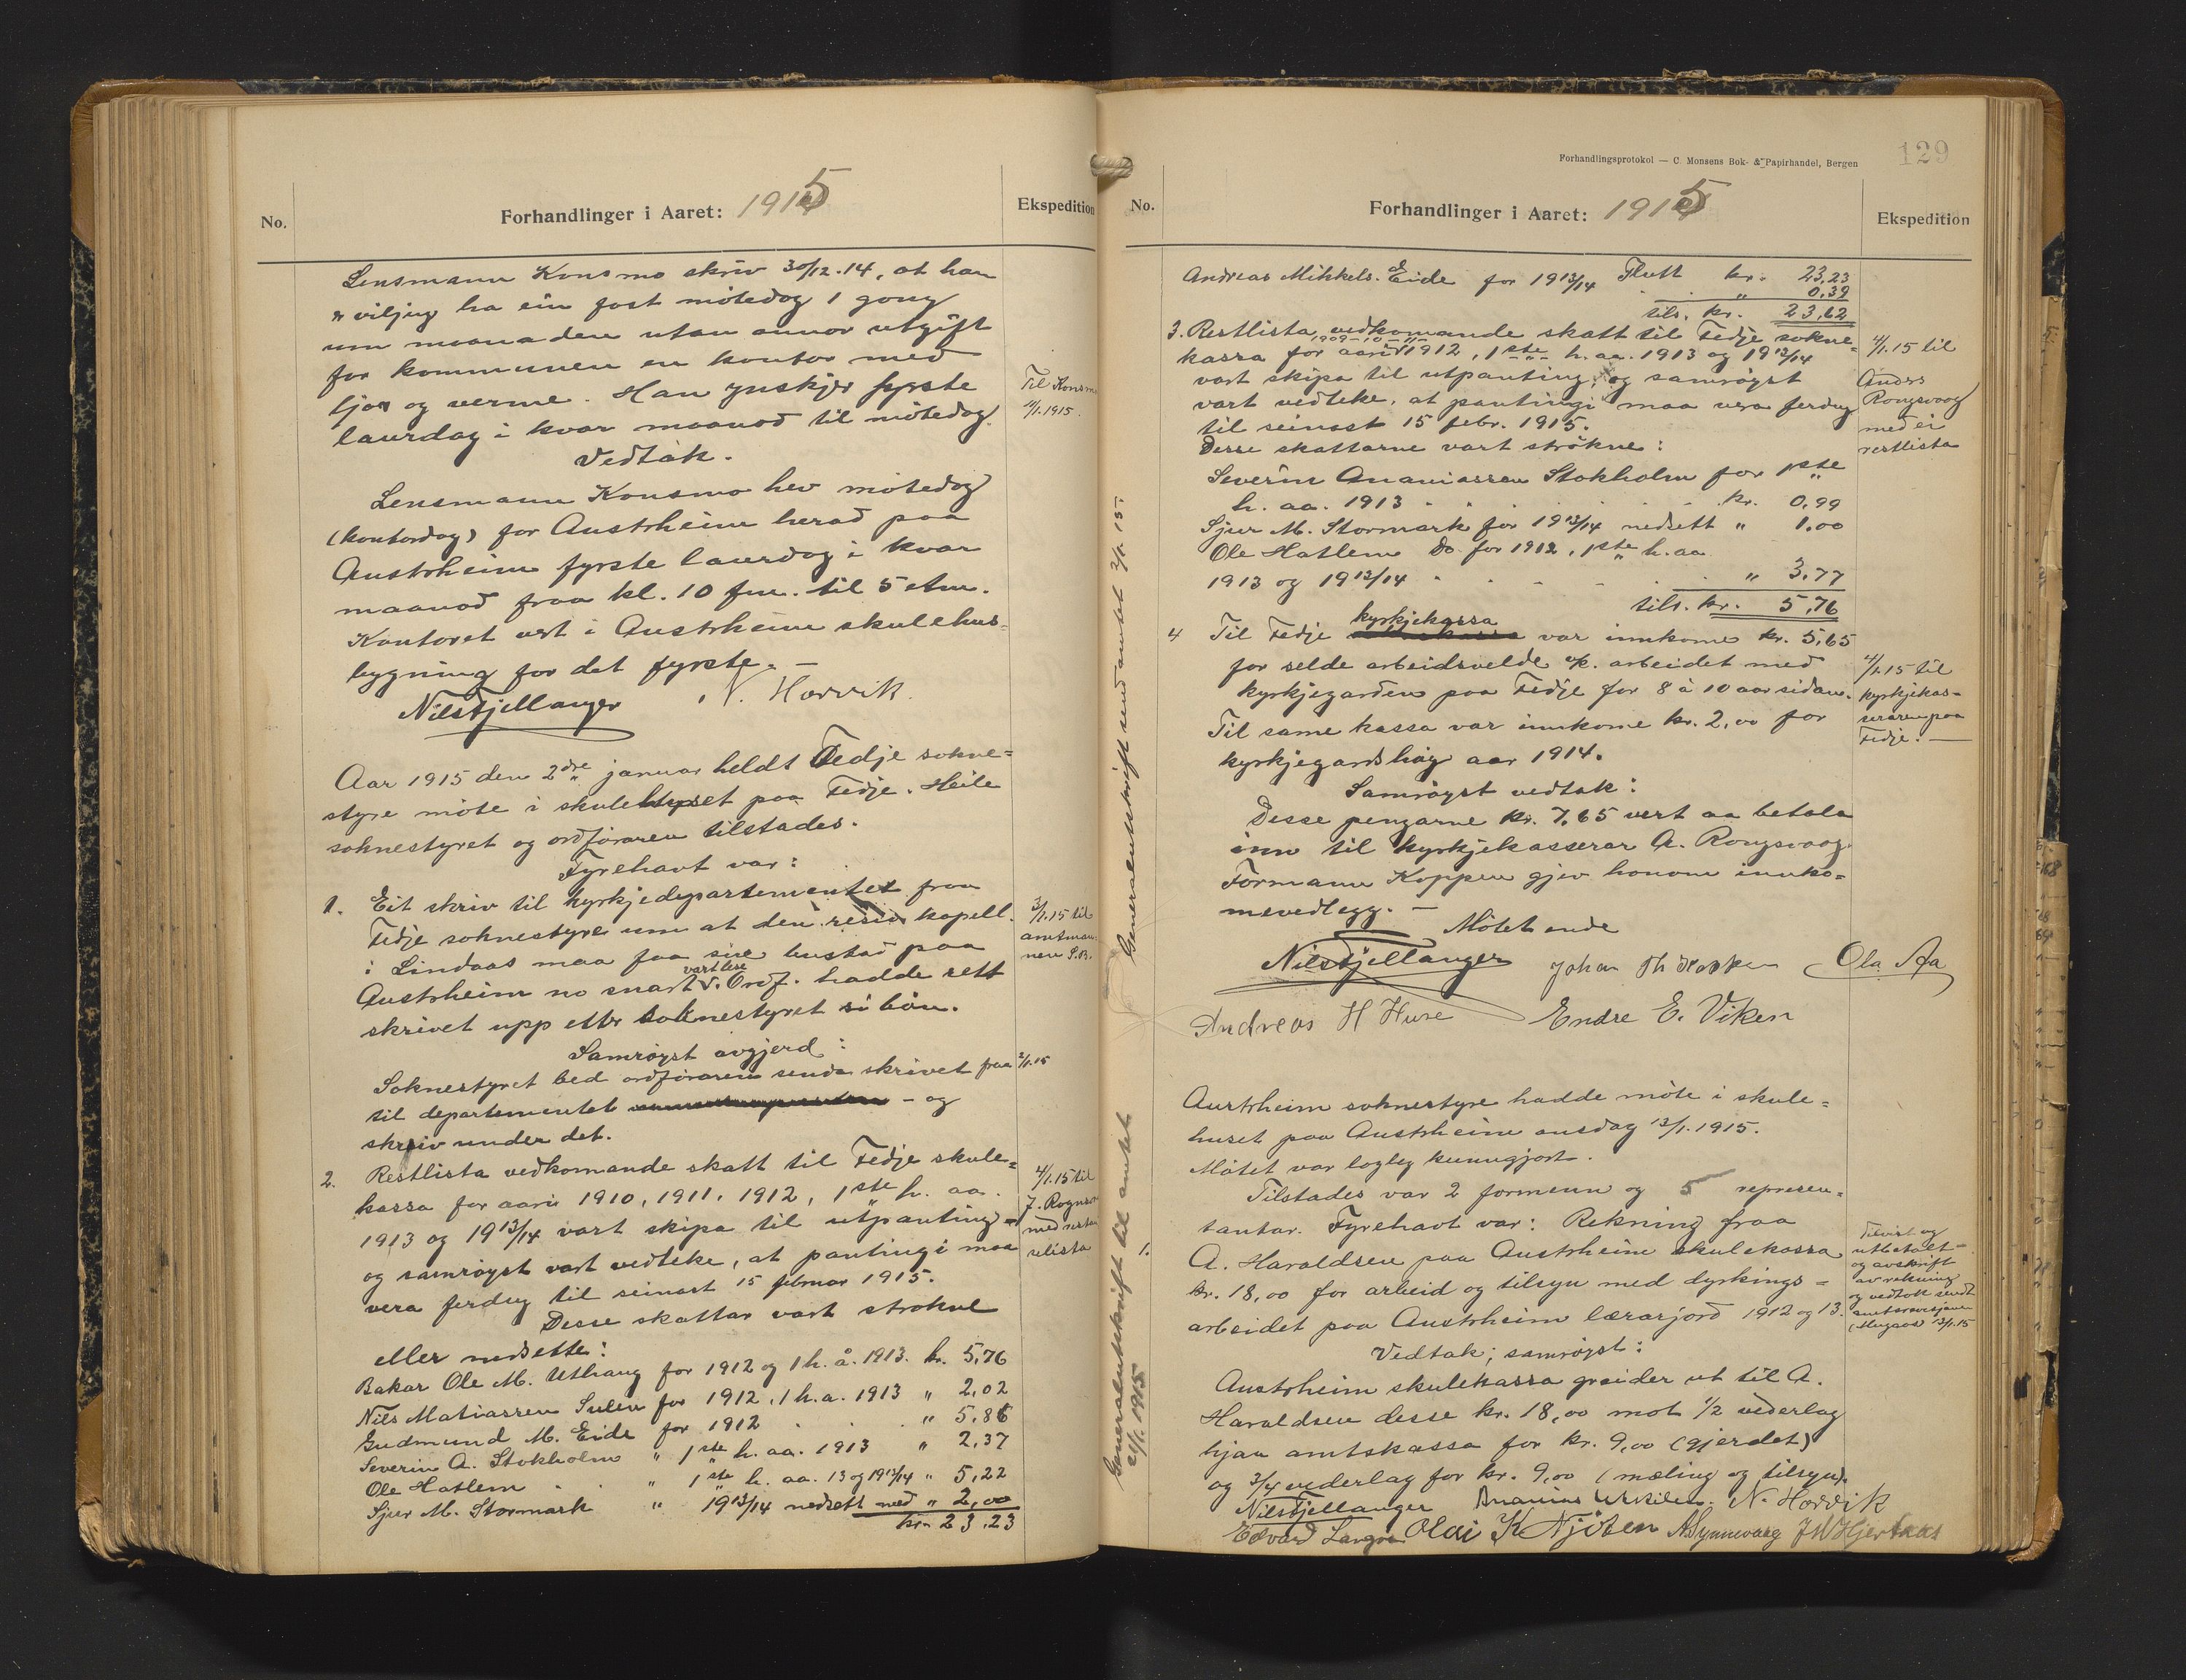 No.
Forhandlinger i Aaret: 1915
Ekspedition
Lensmann Konsmo skriv 30/12-14, at han
er viljug ha ein fast mötedag 1 gong
um maanaden utan annor utgift
for kommunen en kontor med
ljos og verme. Han ynskjer fyrste
laurdag i kvar maanad til mötedag.
Til Konsmo
4/1.1915.
Vedtak.
Lensmann Konsmo hev mötedag
(kontordag) for Austrheim herad paa
Austrheim fyrste laurdag i kvar
maanad fraa kl. 10 fm. til 5 etm.
Kontoret vert i Austrheim skulehus-
bygning for det fyrste. —
Nils Fjellanger N. Horvik
Aar 1915 den 2dre januar heldt Fedje sokne=
styre möte i skulehuset paa Fedje. Heile
soknestyret og ordföraren tilstades.
Fyrehavt var:
1. Eit skriv til kyrkjedepartementet fraa
Fedje soknestyre um at den resid. kapell.
i Lindaas maa faa sin bustad paa
Austrheim no snart. v. Ordf. hadde sett
vart lese
skrivet upp etter soknestyret si bön.
3/1.15 til
amtman-
nen S.B.
Samröyst avgjerd:
Soknestyret bed ordföraren senda skrivet fraa
2/1.15
til departementet — og
skriv under det.
2. Restlista vedkomande skatt til Fedje skule=
kassa for aari 1910, 1911, 1912, 1ste h. aa.
1913 og 1913/14 vart skipa til utpanting -
og samröyst vart vedteke, at pantingi maa
vera ferdug til seinast 15 februar 1915.
4/1.15 til
J. Rognsv
med restan
selista
Desse skattar vart strokne
eller nedsette:
Bakar Ole M. Uthaug for 1912 og 1 h. å. 1913. kr. 5,76
Nils Matiassen Sulen for 1912, 1 h. a. 1913 " 2,02
Gudmund M. Eide for 1912 " 5,86
Severin A. Stokholm " 1ste h. aa. 1913 " 2,37
Ole Hatlem " 1ste h. aa. 13 og 1913/14 " 5,22
Sjur M. Stormark " 1913/14 nedsett med " 2,00
kr. 23,23
Generalutskrift til amtet
21/1. 1915
Generalutskrift send amtet 2/1. 15.
Forhandlingsprotokol — C. Monsens Bok- & Papirhandel, Bergen
129
No.
Forhandlinger i Aaret: 1915
Ekspedition
Flutt kr. 23,23
Andreas Mikkels. Eide for 1913/14 " 0,39
tils. kr. 23,62
3. Restlista vedkomande skatt til Fedje sokne=
1909-10-11-
kassa for aari 1912, 1ste h. aa. 1913 og 1913/14
vart skipa til utpanting, og samröyst
vart vedteke, at pantingi maa vera ferdug
til seinast 15 febr. 1915.
4/1.15 til
Anders
Rongsvaag
med ei
restlista
Desse skattarne vart strökne:
Severin Ananiassen Stokholm for 1ste
h. aa. 1913 kr. 0,99
Sjur M. Stormark for 1913/14 nedsett " 1,00
Ole Hatlem Do for 1912, 1ste h. aa
1913 og 1913/14 " 3,77
tils. kr. 5,76
4 Til Fedje kyrkjekassa var innkome kr. 5,65
for selde arbeidsvelde v/k. arbeidet med
kyrkjegarden paa Fedje for 8 à 10 aar sidan.
Til same kassa var innkome kr. 2,00 for
kyrkjegardshög aar 1914.
4/1.15 til
kyrkjekas-
seraren paa
Fedje. —
Samröyst vedtak:
Desse pengarne kr. 7,65 vert aa betala
inn til kyrkjekasserar A. Rongsvaag.
Formann Koppen gjev honom innko=
mevedlegg. —
Mötet ende
Nils Fjellanger Johan Th Koppen Ola Aa
Andreas H Huse Endre E. Viken
Austrheim soknestyre hadde möte i skule=
huset paa Austrheim onsdag 13/1. 1915.
Mötet var logleg kunngjort.
Tilstades var 2 formenn og 5 represen=
tantar. Fyrehavt var: Rekning fraa
1. A. Haraldsen paa Austrheim skulekassa
kr. 18,00 for arbeid og tilsyn med dyrkings=
arbeidet paa Austrheim lærarjord 1912 og 13.
Tilvist og
utbetalt -
og avskrift
av rekning
og vedtak sendt
amtsrevisjonen
(Mugaas) 13/1.15
Vedtak; samröyst:
Austrheim skulekassa greider ut til A.
Haraldsen desse kr. 18,00 mot 1/2 vederlag
hjaa amtskassa for kr. 9,00 (gjerdet)
og 3/4 vederlag for kr. 9,00 (mæling og tilsyn).
Nils Fjellanger Ananias N. Horvik
Edvard Olai K Njöten A Synnevaag J W Hjertaas